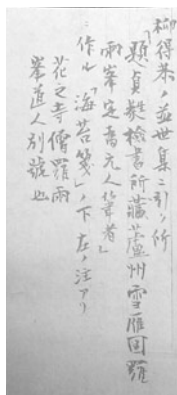 柳得恭ノ並世集ニ引ク所
「題貞蕤検書所蔵蘆州雪雁図羅
両峯定為元人筆者」
ニ作ル「海苔箋」ノ下左ノ注アリ
花之寺僧羅両
峯道人別號也